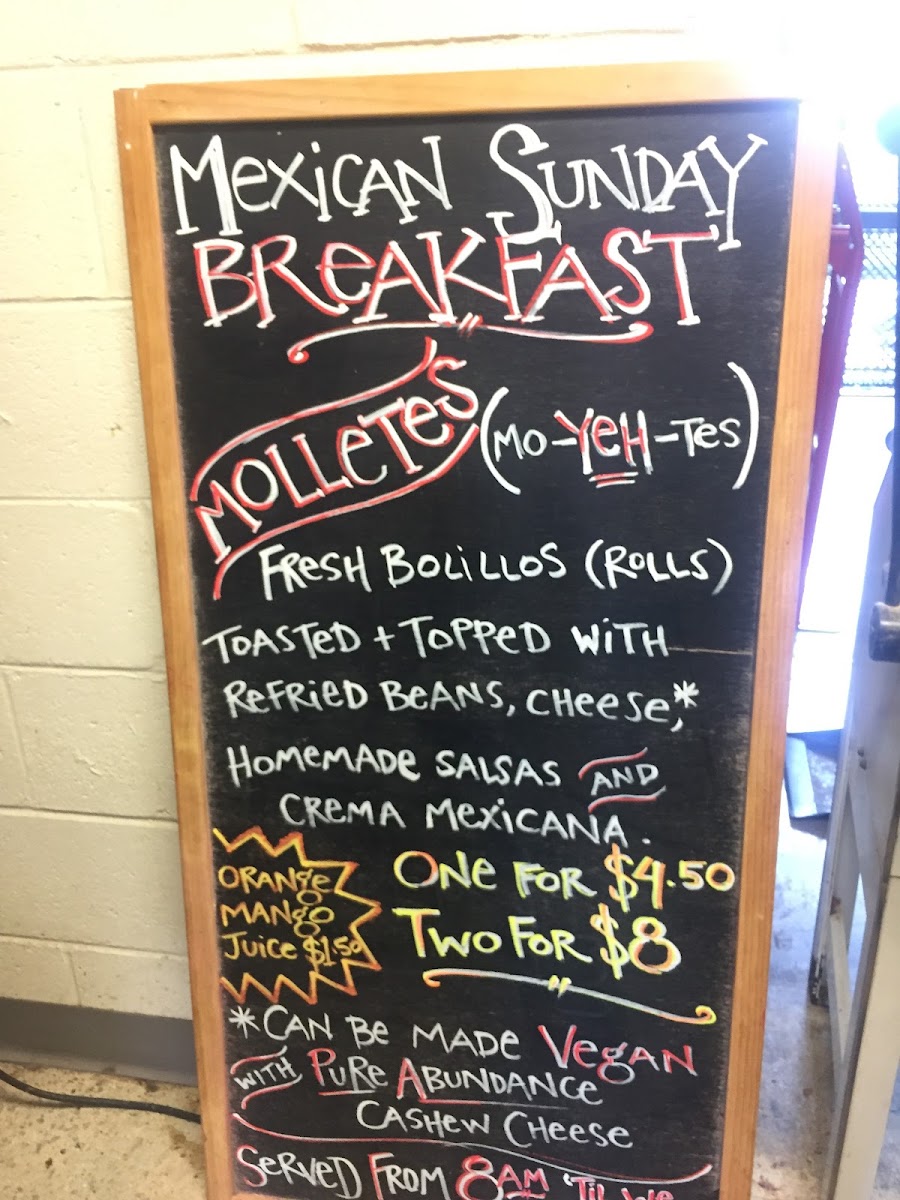 MEXICAN SUNDAY
BREAKFAST
MOLLETES (MO-YEH-TES)
FRESH BOLILLOS (ROLLS)
TOASTED + TOPPED WITH
REFRIED BEANS, CHEESE,*
HOMEMADE SALSAS AND
CREMA MEXICANA.
ORANGE
MANGO
JUICE $1.50
ONE FOR $4.50
TWO FOR $8
*CAN BE MADE VEGAN
WITH PURE ABUNDANCE
CASHEW CHEESE
SERVED FROM 8AM 'TIL WE